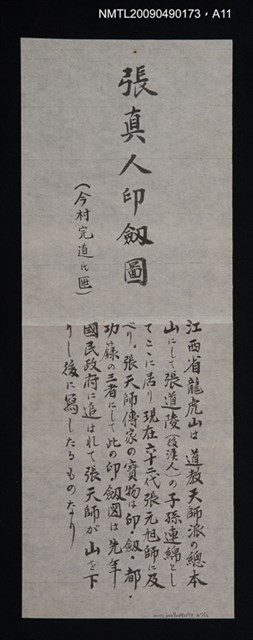 NMTL20090490173，A11
張真人印劔圖
（今村完道氏匣）
江西省龍虎山は道教天師派の總本
山にして張道陵（後漢人）の子孫連綿とし
てこに居り現在六十二代張元旭師に及
べり。張天師傳家の寶物は印・劔・都
功籙の三者にして此の印・劔図は先年
國民政府に追はれて張天師が山を下
りし後に寫したるものなり